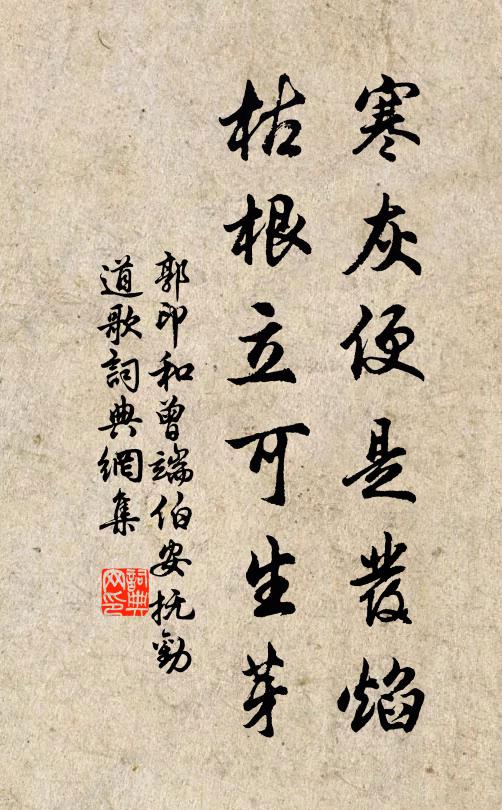 寒灰便是發焰
枯根立可生芽
郭印和曾端伯安抚勸
道歌詞典網集
詞典
网印